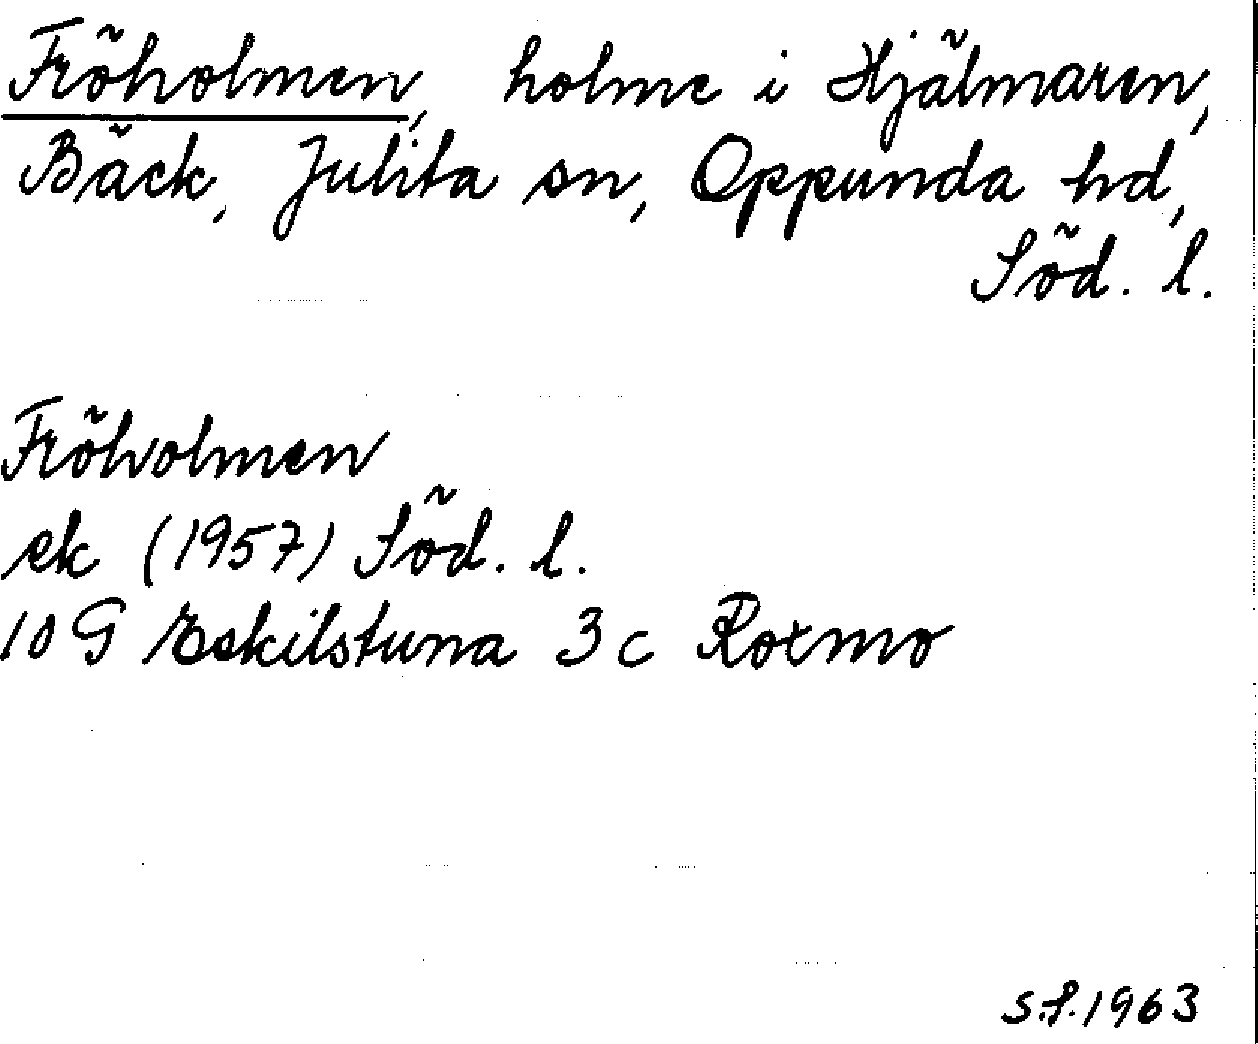 Fröholmen, holme i Hjälmaren,
Bäck, Julita sn, Oppunda hd,
Söd. l.
Fröholmen
ek (1957) Söd. l.
10 G Eskilstuna 3 c Rotmo
S.f. 1963